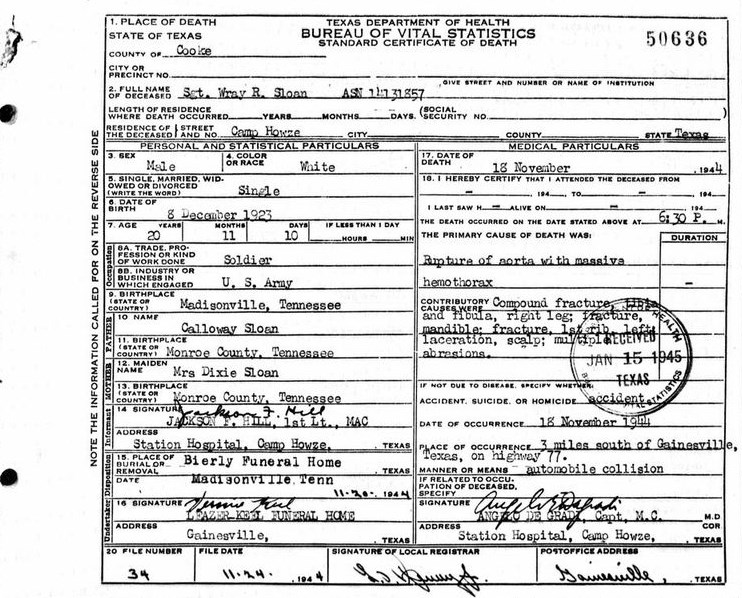 TEXAS DEPARTMENT OF HEALTH
BUREAU OF VITAL STATISTICS
STANDARD CERTIFICATE OF DEATH
50636
1. PLACE OF DEATH
STATE OF TEXAS
COUNTY OF Cooke
CITY OR
PRECINCT NO.
GIVE STREET AND NUMBER OR NAME OF INSTITUTION
2. FULL NAME
OF DECEASED Sgt. Wray R. Sloan ASN 14131857
LENGTH OF RESIDENCE
WHERE DEATH OCCURRED YEARS MONTHS DAYS. (SOCIAL
SECURITY NO.
RESIDENCE OF (STREET
THE DECEASED (AND NO. Camp Howze CITY COUNTY STATE Texas
NOTE THE INFORMATION CALLED FOR ON THE REVERSE SIDE
PERSONAL AND STATISTICAL PARTICULARS
3. SEX
Male
4. COLOR
OR RACE
White
5. SINGLE, MARRIED, WID-
OWED OR DIVORCED
(WRITE THE WORD) Single
6. DATE OF
BIRTH 8 December 1923
7. AGE YEARS MONTHS DAYS IF LESS THAN 1 DAY
20 11 10 HOURS MIN
Occupation
8A. TRADE, PRO-
FESSION OR KIND
OF WORK DONE Soldier
8B. INDUSTRY OR
BUSINESS IN
WHICH ENGAGED U. S. Army
9. BIRTHPLACE
(STATE OR
COUNTRY) Madisonville, Tennessee
FATHER
10 NAME
Calloway Sloan
11. BIRTHPLACE
(STATE OR
COUNTRY) Monroe County, Tennessee
MOTHER
12. MAIDEN
NAME Mrs Dixie Sloan
13. BIRTHPLACE
(STATE OR
COUNTRY) Monroe County, Tennessee
Informant
14 SIGNATURE Jackson F. Hill
JACKSON F. HILL, 1st Lt., MAC
ADDRESS
Station Hospital, Camp Howze, TEXAS
Disposition
15. PLACE OF
BURIAL OR
REMOVAL Bierly Funeral Home
DATE Madisonville Tenn
11-20- 1944
Undertaker
16 SIGNATURE
LEAZER-KEEL FUNERAL HOME
ADDRESS
Gainesville, TEXAS
MEDICAL PARTICULARS
17. DATE OF
DEATH 18 November , 1944
18. I HEREBY CERTIFY THAT I ATTENDED THE DECEASED FROM
- , 194 TO - , 194
I LAST SAW H - ALIVE ON - , 194
THE DEATH OCCURRED ON THE DATE STATED ABOVE AT 6:30 P. M.
THE PRIMARY CAUSE OF DEATH WAS: DURATION
Rupture of aorta with massive
hemothorax -
CONTRIBUTORY
CAUSES WERE Compound fracture, tibia
and fibula, right leg; fracture,
mandible; fracture, 1st rib, left;
laceration, scalp; multiple
abrasions.
HEALTH
RECEIVED
JAN 15 1945
TEXAS
STATISTICS
IF NOT DUE TO DISEASE, SPECIFY WHETHER
ACCIDENT, SUICIDE, OR HOMICIDE accident
DATE OF OCCURRENCE 18 November 1944
PLACE OF OCCURRENCE 3 miles south of Gainesville,
Texas, on highway 77.
MANNER OR MEANS automobile collision
IF RELATED TO OCCU-
PATION OF DECEASED,
SPECIFY
SIGNATURE
ANGELO DE GRADI, Capt, M.C. M.D
ADDRESS COR
Station Hospital, Camp Howze, TEXAS
20 FILE NUMBER FILE DATE SIGNATURE OF LOCAL REGISTRAR POSTOFFICE ADDRESS
34 11-24. 1944 Gainesville, TEXAS